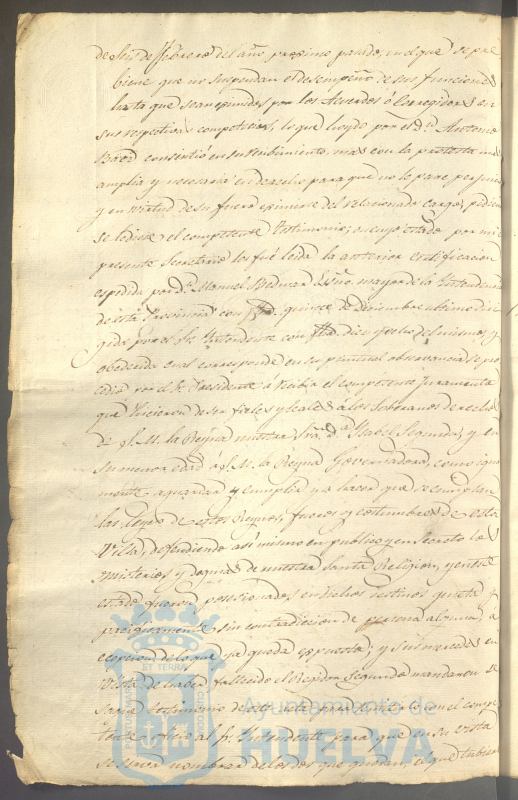 de seis de Febrero del año proximo pasado, en el que se pre
biene que no suspendan el desempeño de sus funciones
hasta que sean expedidas por los Acuerdos ó Corregidores en
sus respectivas competencias, lo que hoydo por el Dn. Antonio
consintió en su recibimiento, mas con la protesta mas
amplia y necesaria en derecho para que no le pare perjuicio
y en virtud de su fuero eximirse del relacionado cargo, pidiendo
se le diese el competente testimonio; en cuyo estado por mi el
presente Secretario les fué leida la anterior certificacion
espedida por Dn. Manuel Bedmar Esno. mayor de la Yntendencia
de esta Provincia con fha. quince de Diciembre ultimo diri
gida por el Sr. Yntendente con fha. diez y ocho del mismo, y
obedecida cual corresponde en su puntual observancia se pro
cedió por el Sr. Presidente á recibir el competente Juramento
que hicieron de ser fieles y leales á los Soberanos de
á S. M. la Reyna nuestra Sra. Da. Ysabel Segunda, y en
su menor edad á S. M. la Reyna Governadora, como igual
mente aguardar y cumplir y á hacer que se cumplan
las leyes de estos Reynos, fueros y costumbres de esta
Villa, defendiendo asi mismo en publico y en secreto los
Misterios y dogmas de nuestra Santa Religion, y en este
estado fueron posesionados en dichos destinos quieta y
pacificamente sin contradicion de persona alguna, á
ecepcion de lo que ya queda espuesto; y sus mercedes en
vista de haber fallecido el Regidor Segundo mandaron se
saque testimonio de este acto para dirijirlo con el compe
tente oficio al Sr. Yntendente para que en su vista
se sirva nombrar de los dos que quedan, el que tubiere
Ayuntamiento de
HUELVA